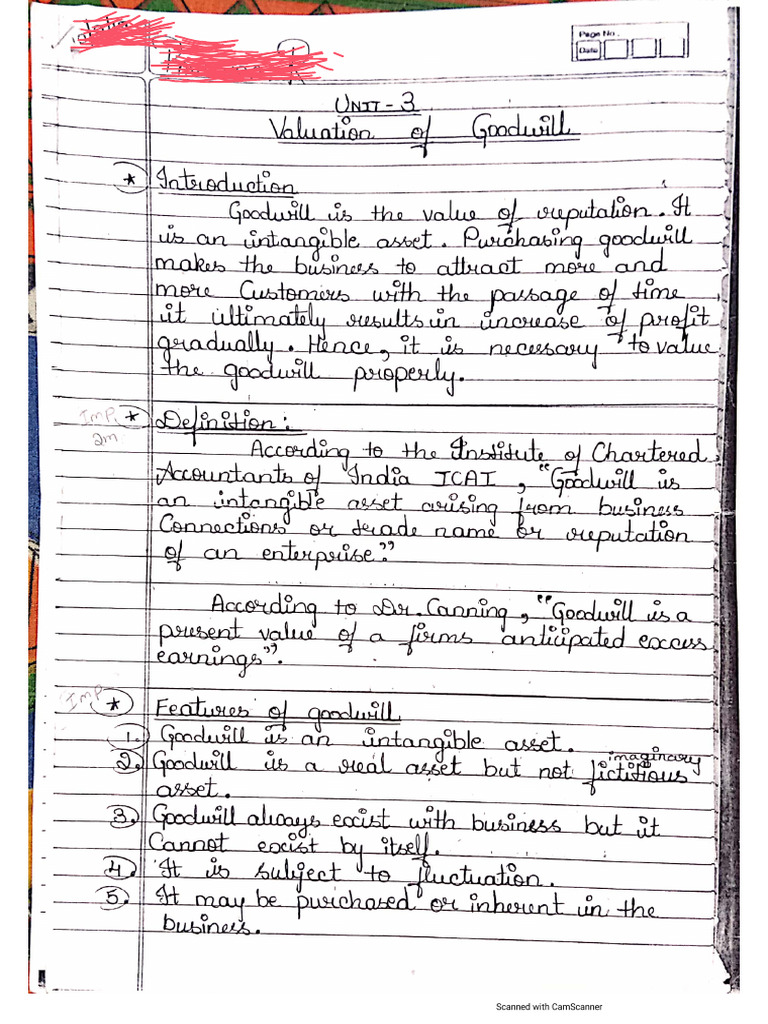 Page No.
Date
UNIT-3
Valuation of Goodwill
* Introduction
Goodwill is the value of reputation. It
is an intangible asset. Purchasing goodwill
makes the business to attract more and
more Customers with the passage of time
it ultimately results in increase of profit
gradually. Hence, it is necessary to value
the goodwill properly.
Imp * Definition:
2m
According to the Institute of Chartered
Accountants of India ICAI, "Goodwill is
an intangible asset arising from business
Connections or trade name or reputation
of an enterprise."
According to Dr. Canning, "Goodwill is a
present value of a firms anticipated excess
earnings".
Imp * Features of goodwill
1. Goodwill is an intangible asset.
imaginary
2. Goodwill is a real asset but not fictitious
asset.
3. Goodwill always exist with business but it
Cannot exist by itself.
4. It is subject to fluctuation.
5. It may be purchased or inherent in the
business.
Scanned with CamScanner